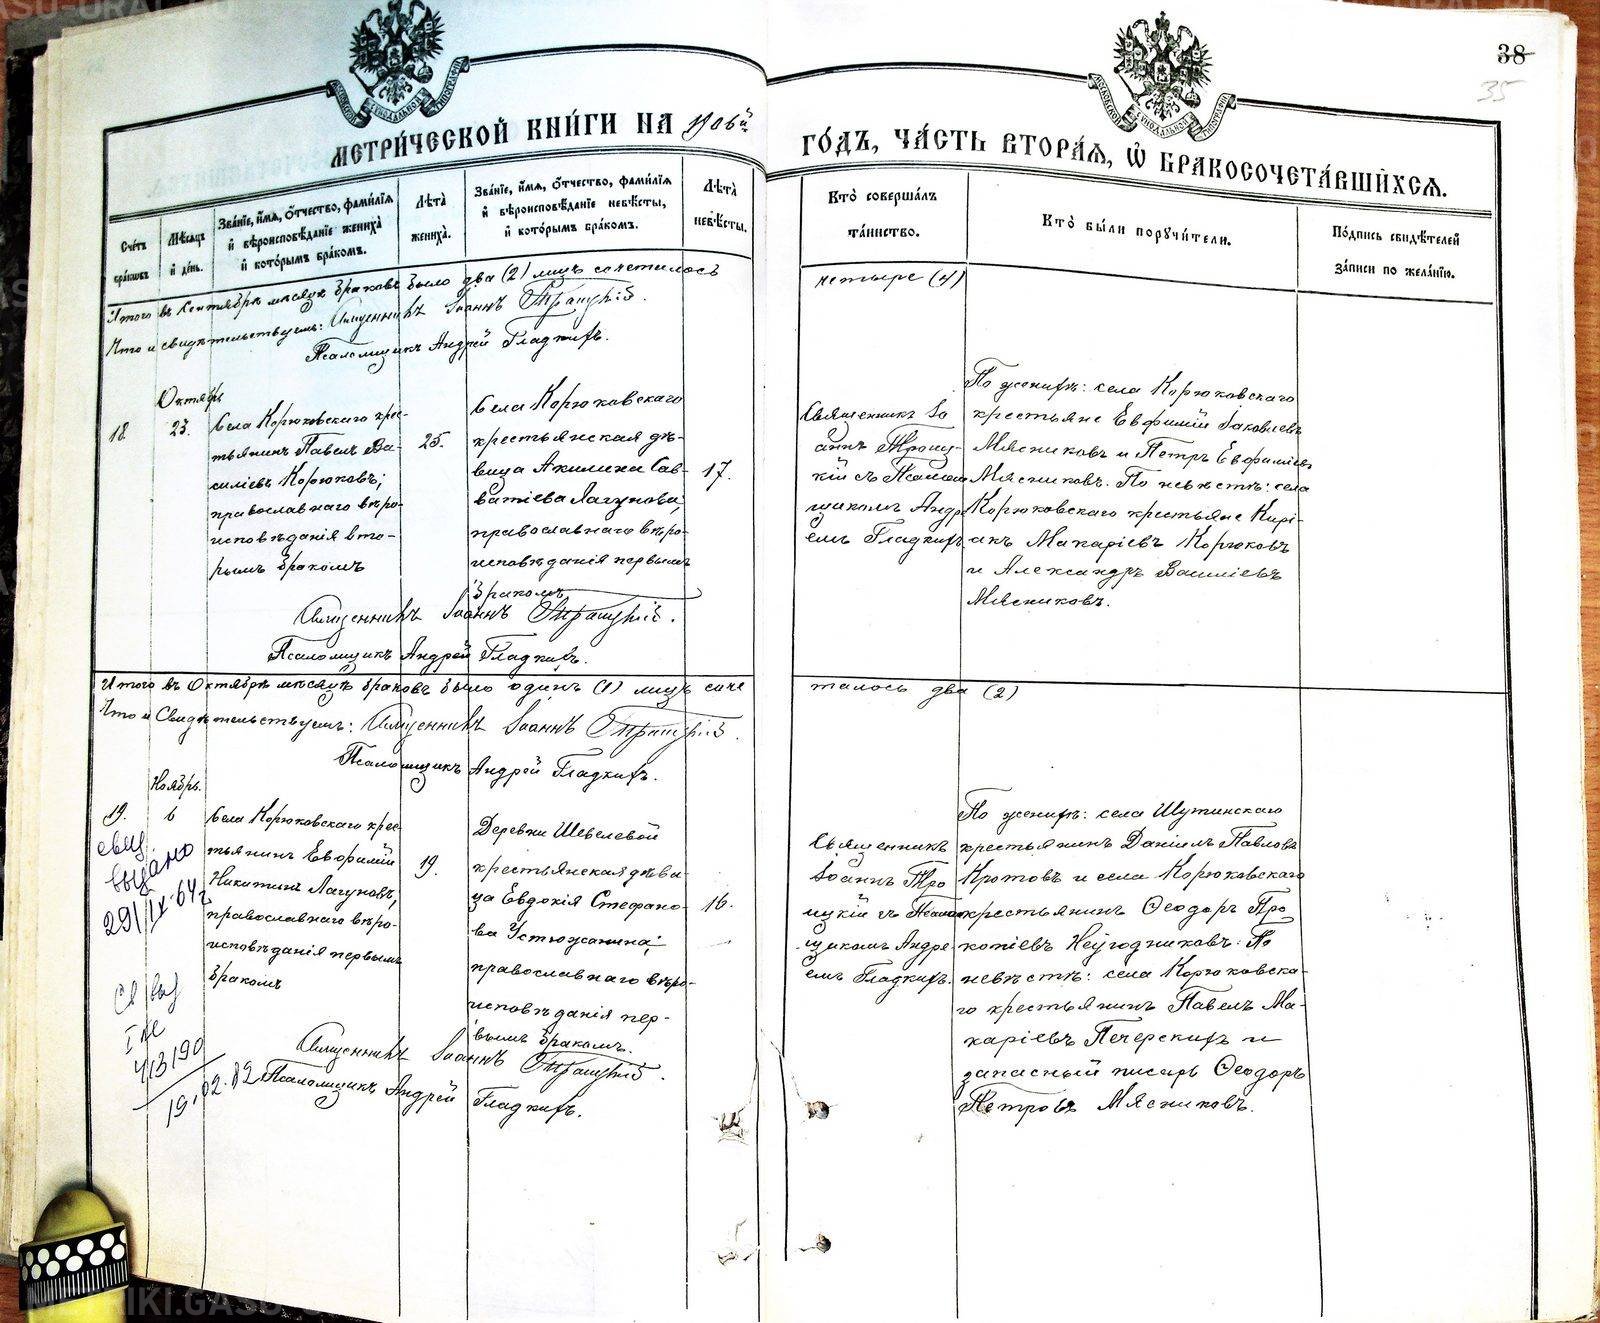 38
35
МОСКОВСКОЙ СѴНОДАЛЬНОЙ ТИПОГРАФІИ
МОСКОВСКОЙ СѴНОДАЛЬНОЙ ТИПОГРАФІИ
МЕТРИ́ЧЕСКОЙ КНИ́ГИ НА 1906й
ГО́ДЪ, ЧА́СТЬ ВТОРА́Я, Ѡ҆ БРАКОСОЧЕТА́ВШИХСЯ.
Сче́тъ
бра́кѡвъ
Мѣ́сяцъ
и҆ де́нь.
Зва́нїе, и҆́мя, ѻ҆́тчество, фами́лїя
и҆ вѣроисповѣ́данїе жениха̀
и҆ кото́рымъ бра́комъ.
Лѣ́та
жениха̀.
Зва́нїе, и҆́мя, ѻ҆́тчество, фами́лїя
и҆ вѣроисповѣ́данїе невѣ́сты,
и҆ кото́рымъ бра́комъ.
Лѣ́та
невѣ́сты.
Кто̀ соверша́лъ
та́инство.
Кто̀ бы́ли порꙋчи́тели.
По́дпись свидѣ́телей
за́писи по жела́нїю.
Итого въ Сентябрѣ мѣсяцѣ браковъ было два (2) лицъ сочеталось
четыре (4)
Что и свидѣтельствуемъ: Священникъ Іоаннъ Троицкій.
Псаломщикъ Андрей Гладкихъ.
Октябрь
18.
23.
Села Корюковскаго крес-
тьянинъ Павелъ Ва-
силіевъ Корюковъ;
православнаго вѣро-
исповѣданія вто-
рымъ бракомъ
25.
Села Корюковскаго
крестьянская дѣ-
вица Акилина Сав-
ватіева Лагунова;
православнаго вѣро-
исповѣданія первымъ
бракомъ
17.
Священникъ Іо
аннъ Троиц-
кій съ Псалом
щикомъ Андре
емъ Гладкихъ
По женихѣ: села Корюковскаго
крестьяне Евфимій Іаковлевъ
Мясниковъ и Петръ Евфиміевъ
Мясниковъ. По невѣстѣ: села
Корюковскаго крестьяне Кирі-
акъ Макаріевъ Корюковъ
и Александръ Василіевъ
Мясниковъ.
Священникъ Іоаннъ Троицкій.
Псаломщикъ Андрей Гладкихъ.
Итого въ Октябрѣ мѣсяцѣ браковъ было одинъ (1) лицъ соче
талось два (2)
Что и Свидѣтельствуемъ: Священникъ Іоаннъ Троицкій.
Псаломщикъ Андрей Гладкихъ.
Ноябрь.
19.
6
свид.
выдано
29/IX-64г
Св выд
4/3190
19.02.82
Села Корюковскаго крес
тьянинъ Евфимій
Никитинъ Лагуновъ,
православнаго вѣро-
исповѣданія первымъ
бракомъ
19.
Деревни Шевелевой
крестьянская дѣви-
ца Евдокія Стефано-
ва Устюжанина;
православнаго вѣро-
исповѣданія пер-
вымъ бракомъ.
16.
Священникъ
Іоаннъ Тро
ицкій съ Псалом
щикомъ Андре-
емъ Гладкихъ.
По женихѣ: села Шутинскаго
крестьянинъ Даніилъ Павловъ
Кротовъ и села Корюковскаго
крестьянинъ Ѳеодоръ Про
копіевъ Неугодниковъ. По
невѣстѣ: села Корюковска-
го крестьянинъ Павелъ Ма-
каріевъ Печерскихъ и
запасный писарь Ѳеодоръ
Петровъ Мясниковъ.
Священникъ Іоаннъ Троицкій.
Псаломщикъ Андрей Гладкихъ.
METRIKI.GASU